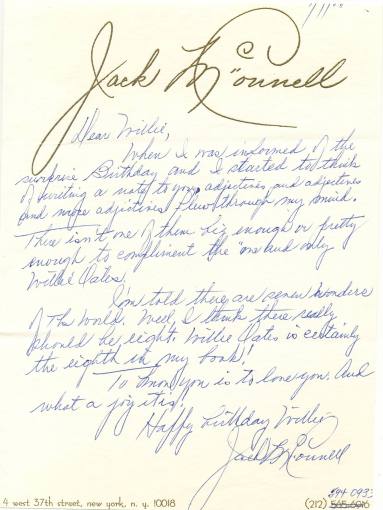 Jack McConnell
Dear Willie,
When I was informed of the
surprise Birthday and I started to think
of writing a note to you, adjectives, and adjectives
and more adjectives flew through my mind.
There isn't one of them big enough or pretty
enough to compliment the "one and only
Willie Oates.
I'm told there are seven wonders
of The World. Well, I think there really
should be eight. Willie Oates is certainly
the eighth in my book!
To know you is to love you. And
what a joy it is!
Happy birthday Willie
Jack McConnell
4 west 37th street, new york, n. y. 10018
(212) 565-6916